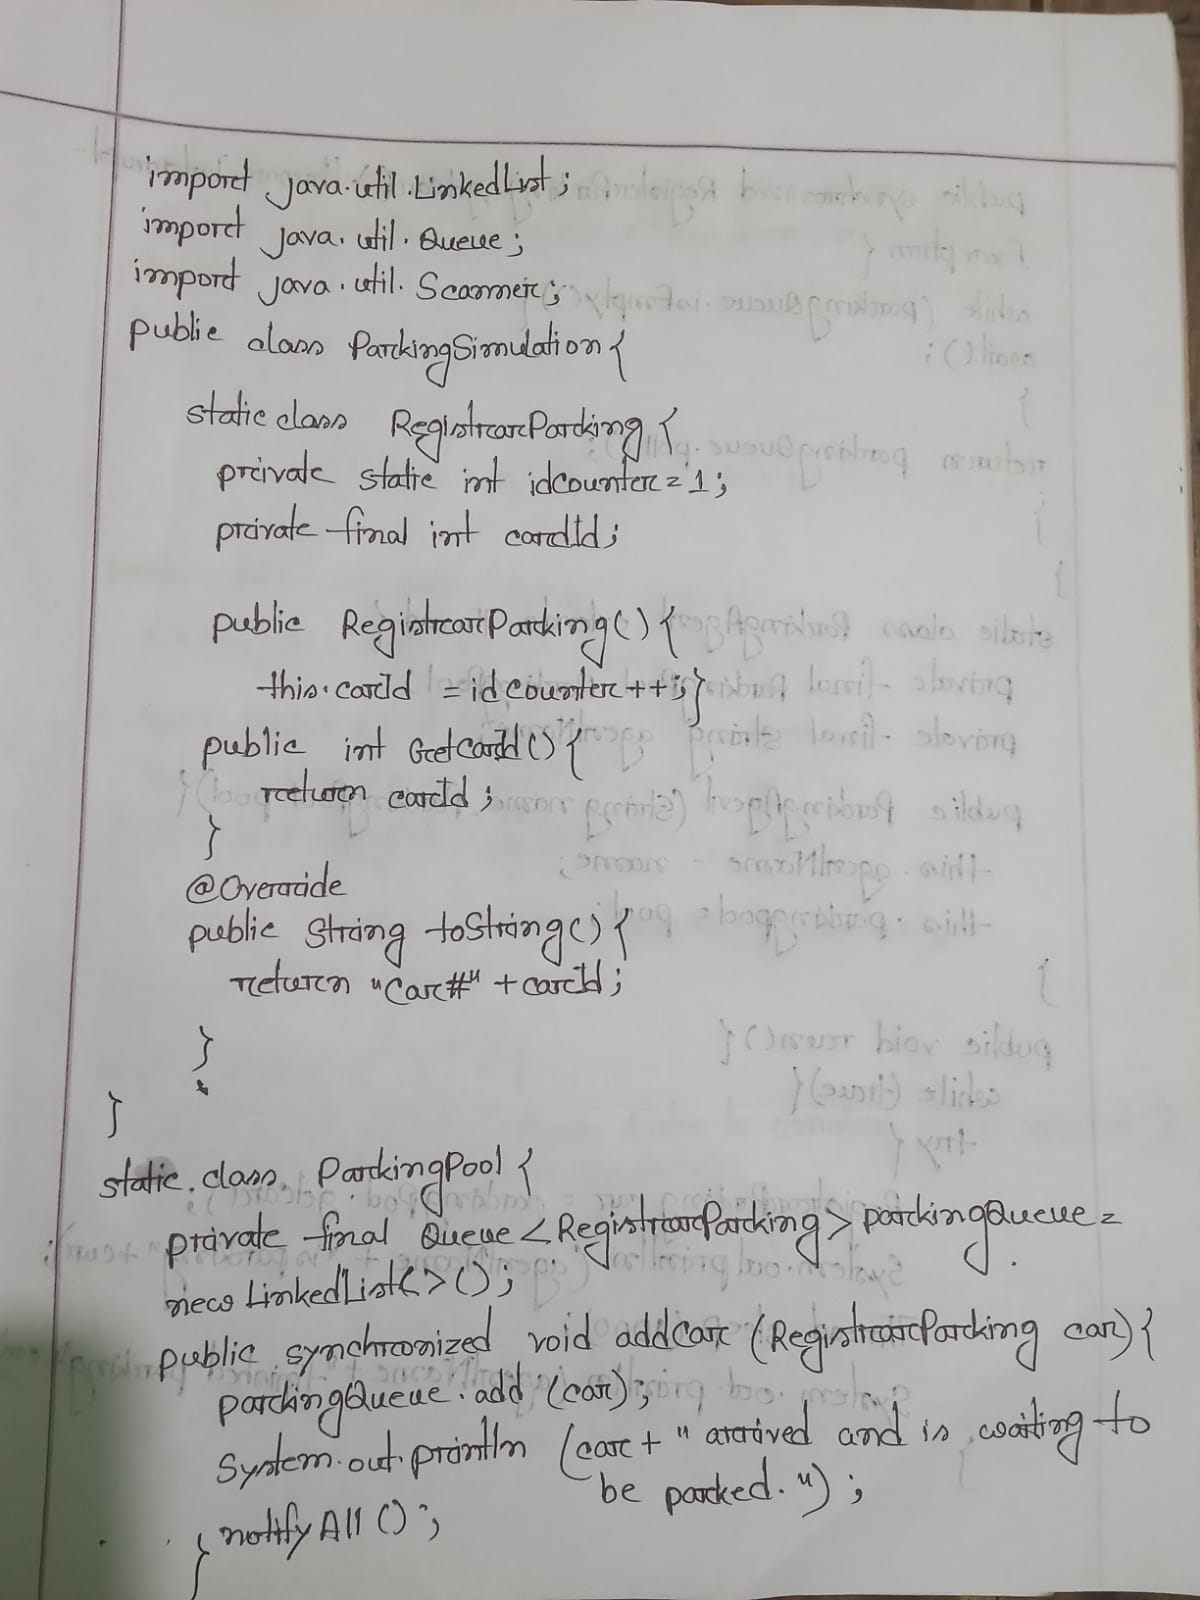 import java.util.LinkedList;
import java.util.Queue;
import java.util.Scanner;
public class ParkingSimulation{
static class RegistrarParking{
private static int idcounter=1;
private final int carId;
public RegistrarParking(){
this.carId = idcounter++;}
public int GetCarId(){
return carId;
}
@Override
public String toString(){
return "Car#"+carId;
}
}
static class ParkingPool{
private final Queue<RegistrarParking> parkingQueue=
new LinkedList<>();
public synchronized void addCar(RegistrarParking car){
parkingQueue.add(car);
System.out.println(car+" arrived and is waiting to
be parked.");
notifyAll();
}